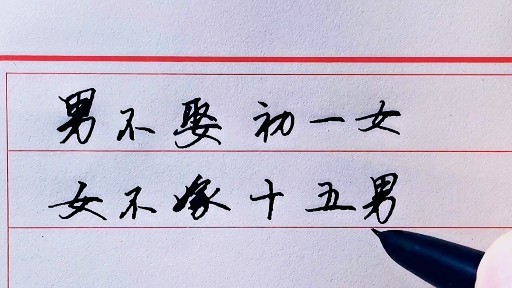 男不娶初一女
女不嫁十五男